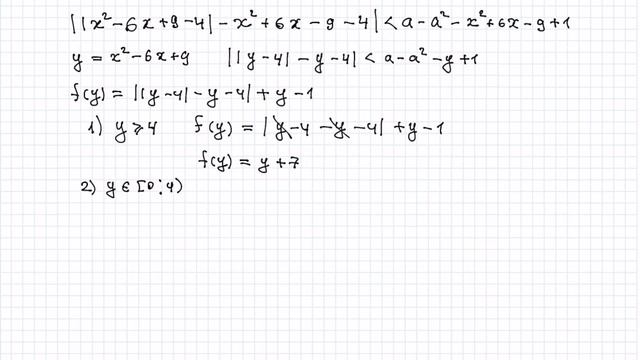 ||x²-6x+9-4|-x²+6x-9-4|<a-a²-x²+6x-9+1
y=x²-6x+9 ||y-4|-y-4|<a-a²-y+1
f(y)=||y-4|-y-4|+y-1
1) y⩾4 f(y)=|y-4-y-4|+y-1
f(y)=y+7
2) y∈[0;4)